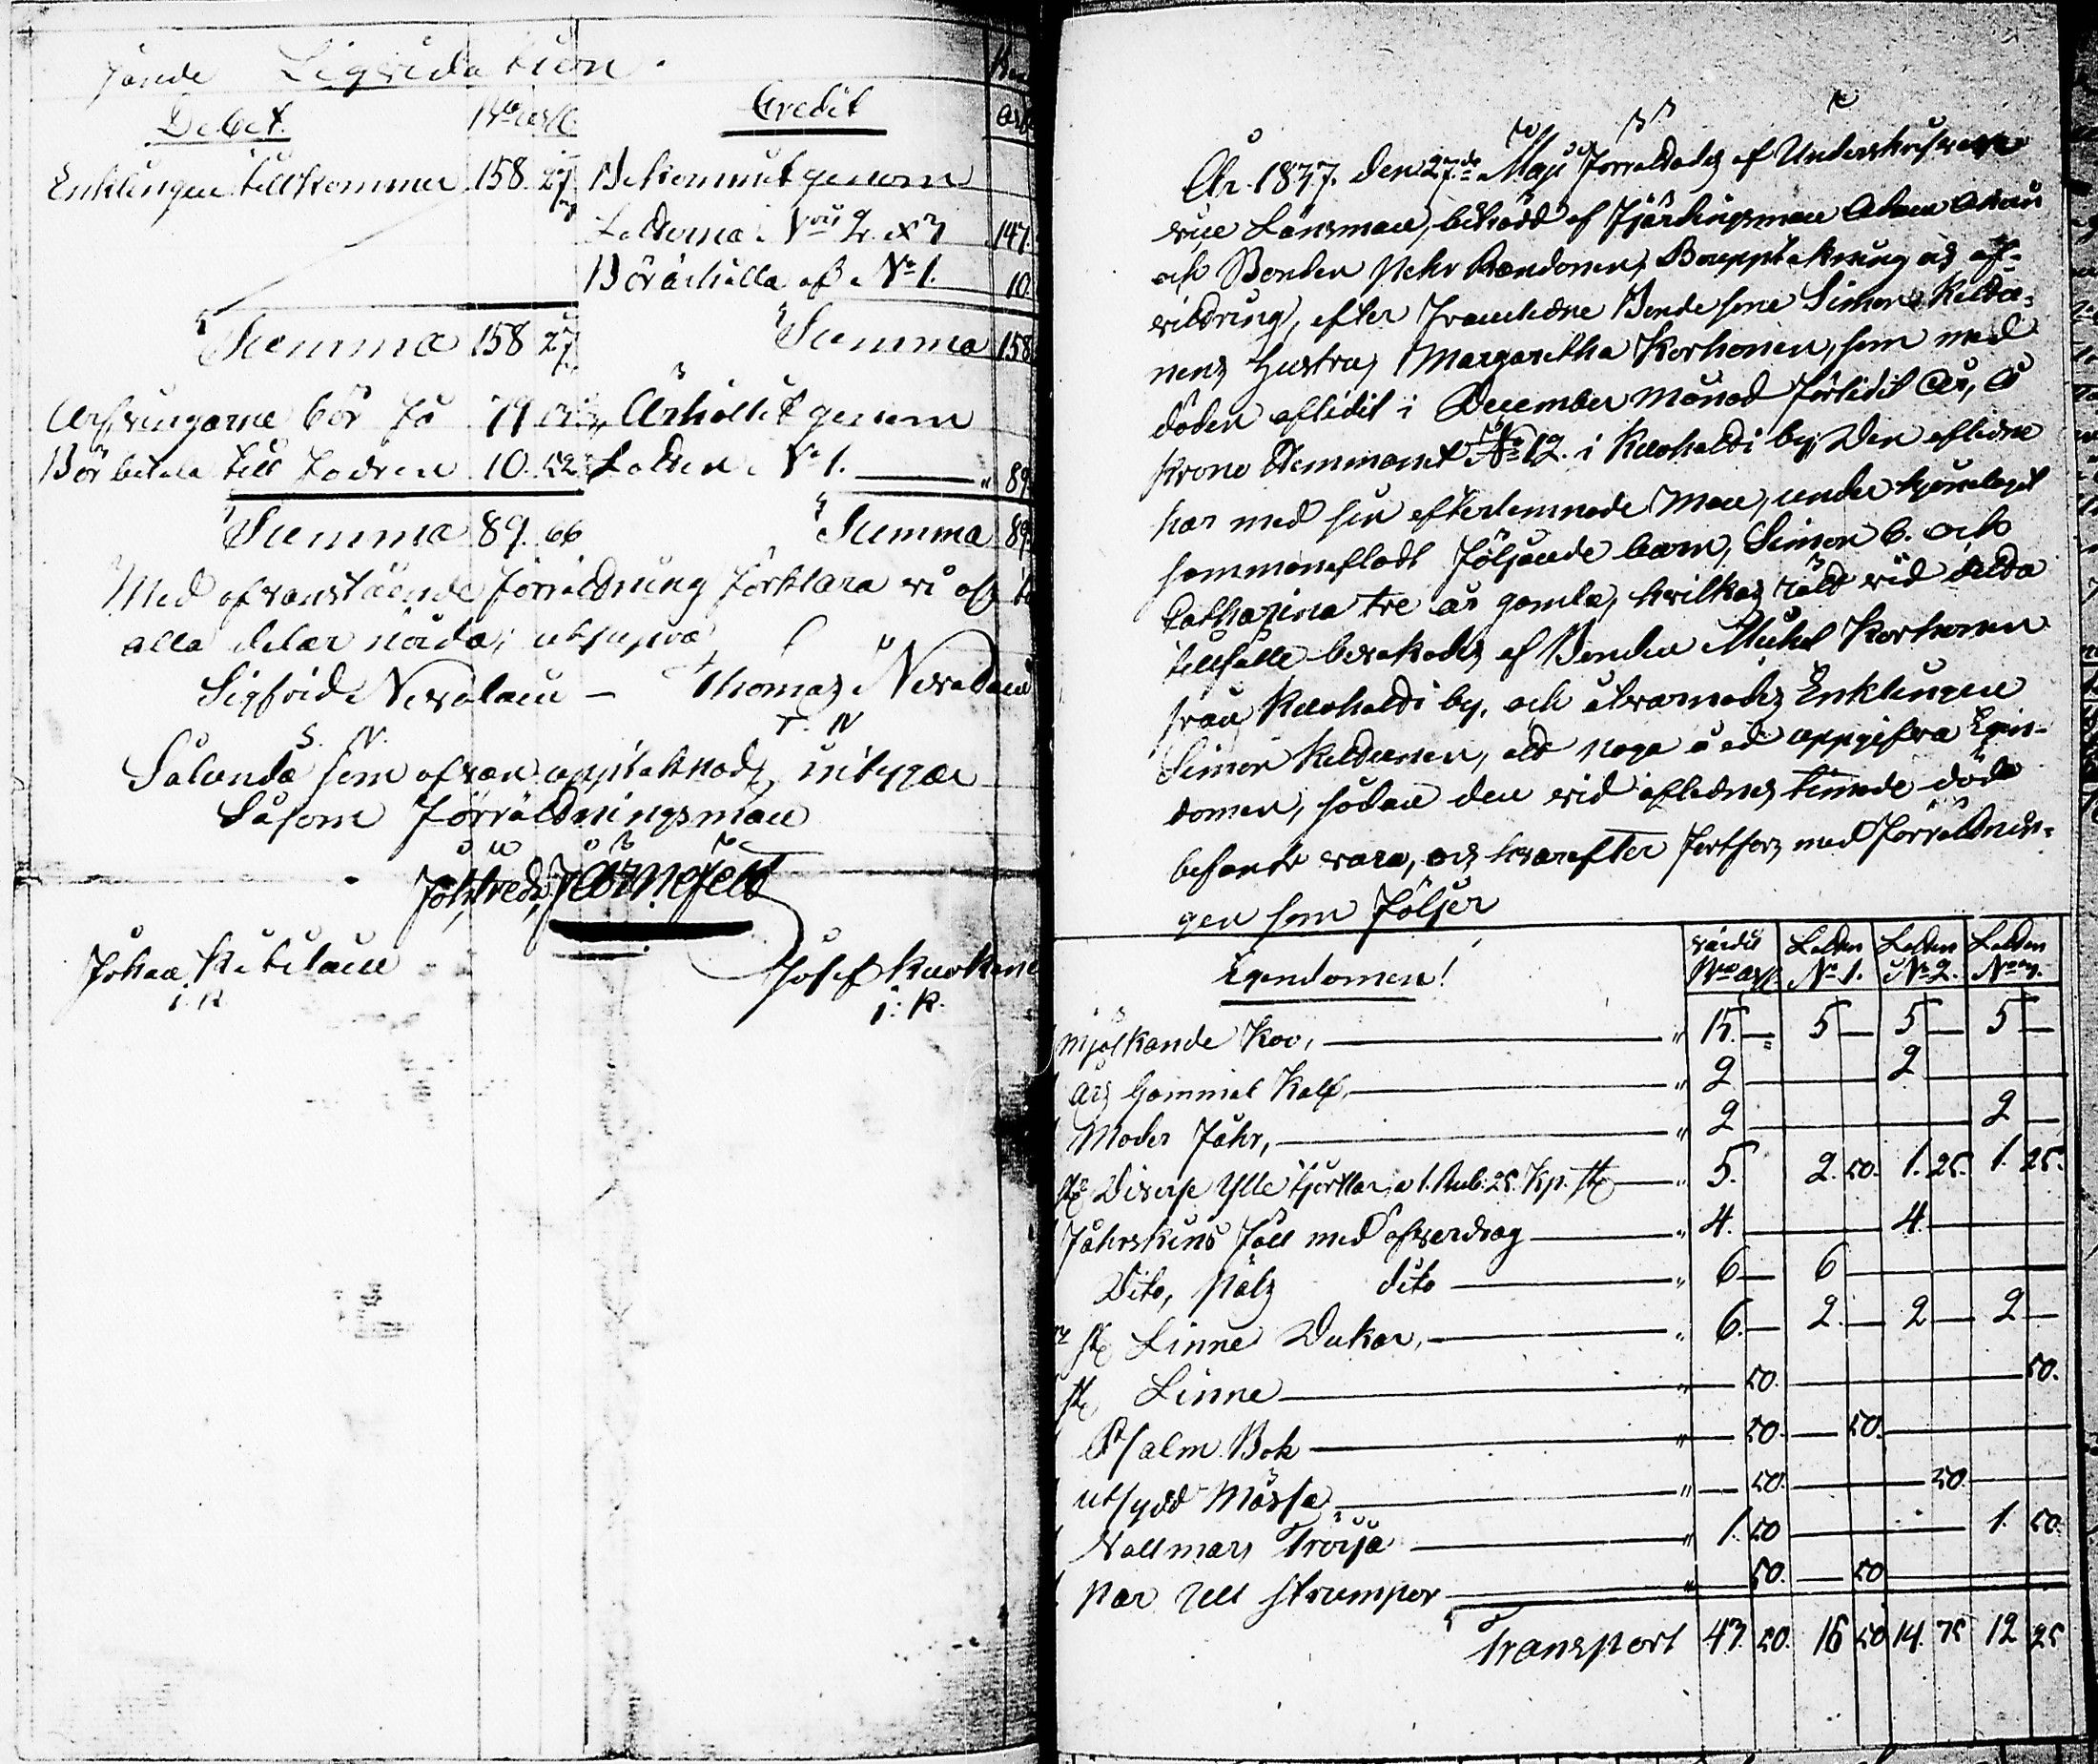 jande Liqvidation.
Debet. Rbl assg. Credit
Enklingen tillkommer 158. 27 Bekommit genom
Lotterna Nris 2. &3 147.
Bör erhålla af No 1. 10.
Summa 158 27 Summa 158
Arfvingarne bör få 79. Erhållit genom
Bör betala till Fadren 10. 52 Lotten No 1. — " 89.
Summa 89. 66 Summa 89.
Med ofvanstående förrättning förklara vi oss till
alla delar nöjda; ut supra
Sigfrid Nevalain — Thomas Nevalain
S. N. T. N
Sålunda som ofvan upptecknadt, intygar
Såsom Förrättningsman
Joh. Fredr. Järnefelt
Johan Kukkain
J. K
Josef Kuokane
J. K.
År 1837. den 27de Maji förrättades af Undertecknad
Länsman, biträdd af Fjärdingsman Adam
och Bonden Pehr Bouppteckning och af-
vittring, efter framlidne Bonde sone Simon Keldu-
nens Hustru, Margaretha Korhonen, som med
döden aflidit i December Månad förlidit År, å
Krono Hemmanet No 12. i by; Den aflidne
har med sin efterlemnade Man, under hjonelaget
sammanaflat följande barn, Simon 6. och
Catharina tre år gamla, hvilkas rätt vid detta
tillfälle bevakades af Bonden Michel Korhonen
från by, och åtvarnades Enklingen
Simon Keldunen, att noga å ed uppgifva Egen-
domen, sådan den vid aflidnes timade död
befants vara, och hvarefter fortfors med förrättnin-
gen som följer
Egendomen! värdit Lotten Lotten Lotten
Rbl assg. No 1. No 2. No 3.
Mjölkande Ko, — " 15. — 5 — 5 — 5 —
års gammal Kalf, — " 2 — 2 —
Moder Fåhr, — " 2 — 2 —
st. Diverse Ylle kjortlar, a 1. Rub. 25. Kp. st. — " 5. 2. 50. 1. 25. 1. 25.
Fåhrskins Fäll med öfverdrag — " 4. — 4. —
Dito, Päls dito — " 6 — 6 —
st. Linne Dukar, — " 6. — 2. — 2 — 2 —
st. Linne — " — 50. — 50.
Psalm Bok — " — 50. — 50. —
utsydd Mössa — " — 50. — 50. —
Vallmars Tröija — " 1. 50 — 1. 50.
par ull strumpor — " 50. — 50 —
Transport 43. 50. 16 50 14. 75 12 25